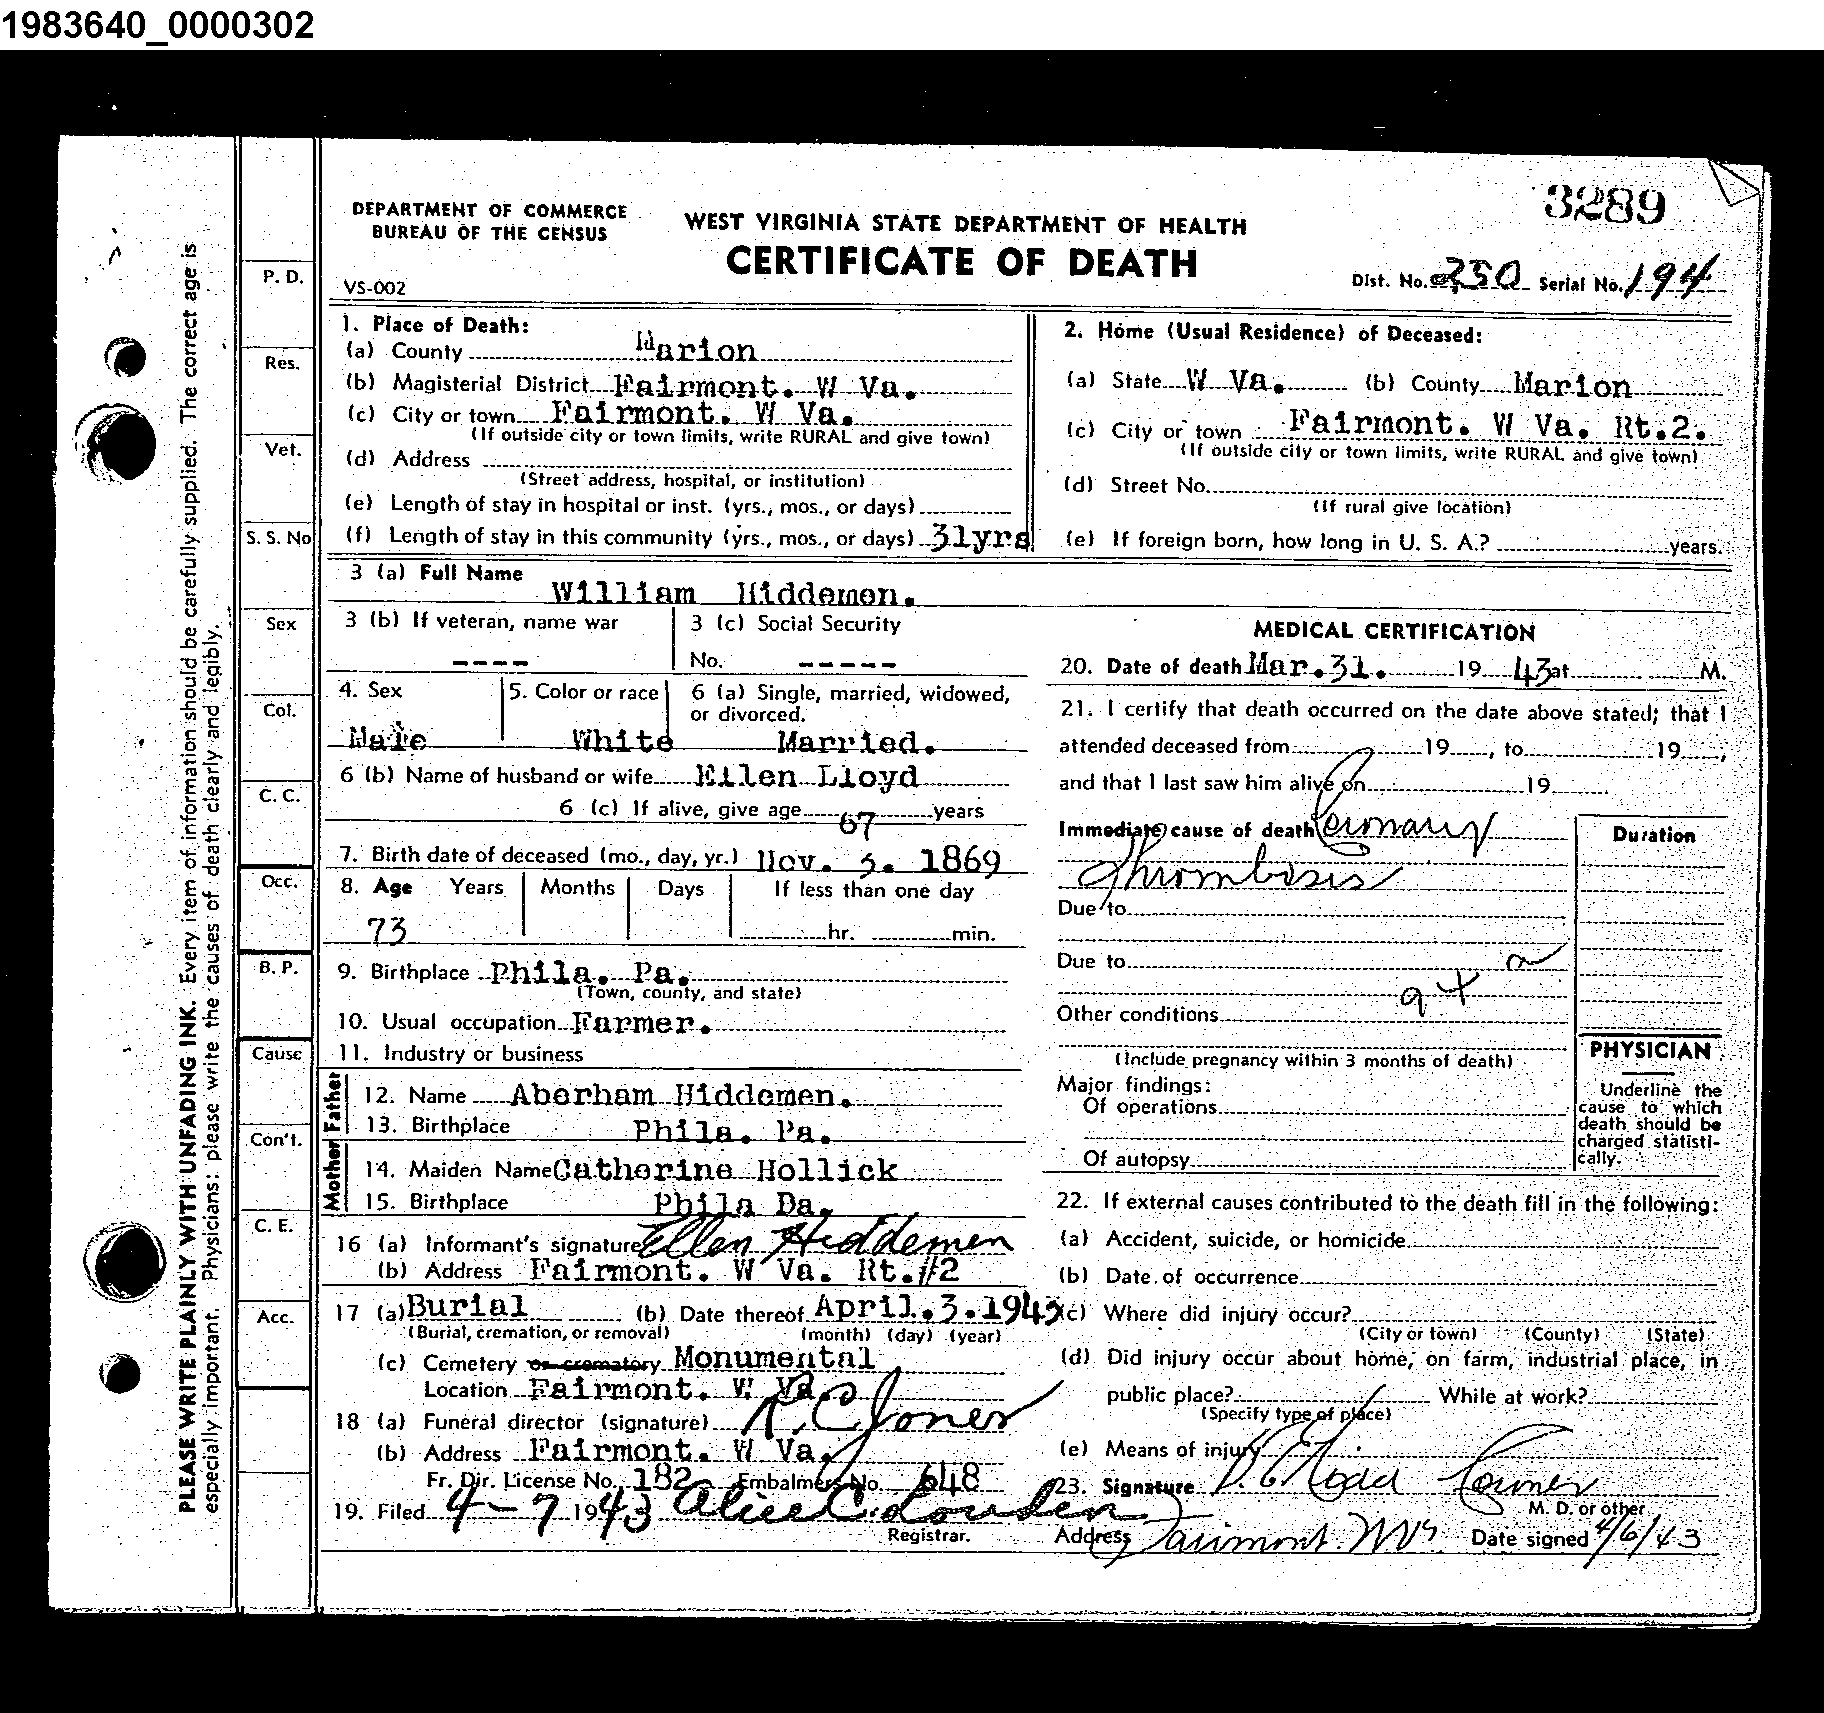 1983640_0000302
3289
DEPARTMENT OF COMMERCE
BUREAU OF THE CENSUS
WEST VIRGINIA STATE DEPARTMENT OF HEALTH
CERTIFICATE OF DEATH
VS-002
Dist. No. 250 Serial No. 194
PLEASE WRITE PLAINLY WITH UNFADING INK. Every item of information should be carefully supplied. The correct age is
especially important. Physicians: please write the causes of death clearly and legibly.
P. D.
Res.
Vet.
S. S. No
Sex
Col.
C. C.
Occ.
B. P.
Cause
Con't.
C. E.
Acc.
1. Place of Death:
(a) County Marion
(b) Magisterial District Fairmont. W Va.
(c) City or town Fairmont. W Va.
(If outside city or town limits, write RURAL and give town)
(d) Address
(Street address, hospital, or institution)
(e) Length of stay in hospital or inst. (yrs., mos., or days)
(f) Length of stay in this community (yrs., mos., or days) 31yrs
2. Home (Usual Residence) of Deceased:
(a) State W Va. (b) County Marion
(c) City or town Fairmont. W Va. Rt.2.
(If outside city or town limits, write RURAL and give town)
(d) Street No.
(If rural give location)
(e) If foreign born, how long in U. S. A.? years.
3 (a) Full Name
William Hiddemen.
3 (b) If veteran, name war
----
3 (c) Social Security
No. -----
4. Sex
Male
5. Color or race
White
6 (a) Single, married, widowed,
or divorced.
Married.
6 (b) Name of husband or wife Ellen Lloyd
6 (c) If alive, give age 67 years
7. Birth date of deceased (mo., day, yr.) Nov. 3. 1869
8. Age Years Months Days If less than one day
73 hr. min.
9. Birthplace Phila. Pa.
(Town, county, and state)
10. Usual occupation Farmer.
11. Industry or business
Father
12. Name Aberham Hiddemen.
13. Birthplace Phila. Pa.
Mother
14. Maiden Name Catherine Hollick
15. Birthplace Phila Pa.
16 (a) Informant's signature Ellen Hiddemen
(b) Address Fairmont. W Va. Rt.#2
17 (a) Burial (b) Date thereof April.3.1943
(Burial, cremation, or removal) (month) (day) (year)
(c) Cemetery or crematory Monumental
Location Fairmont. W Va.
18 (a) Funeral director (signature) R C Jones
(b) Address Fairmont. W Va.
Fr. Dir. License No. 182 Embalmers No. 648
19. Filed 4-7 1943 Alice C. Louden
Registrar.
MEDICAL CERTIFICATION
20. Date of death Mar.31. 19 43 at M.
21. I certify that death occurred on the date above stated; that I
attended deceased from 19 , to 19 ,
and that I last saw him alive on 19
Immediate cause of death Coronary
Thrombosis
Duration
Due to
Due to
94 a
Other conditions
(Include pregnancy within 3 months of death)
Major findings:
Of operations
Of autopsy
PHYSICIAN
Underline the
cause to which
death should be
charged statisti-
cally.
22. If external causes contributed to the death fill in the following:
(a) Accident, suicide, or homicide
(b) Date of occurrence
(c) Where did injury occur?
(City or town) (County) (State)
(d) Did injury occur about home, on farm, industrial place, in
public place? While at work?
(Specify type of place)
(e) Means of injury
23. Signature Coroner
M. D. or other
Address Fairmont. W Va. Date signed 4/6/43